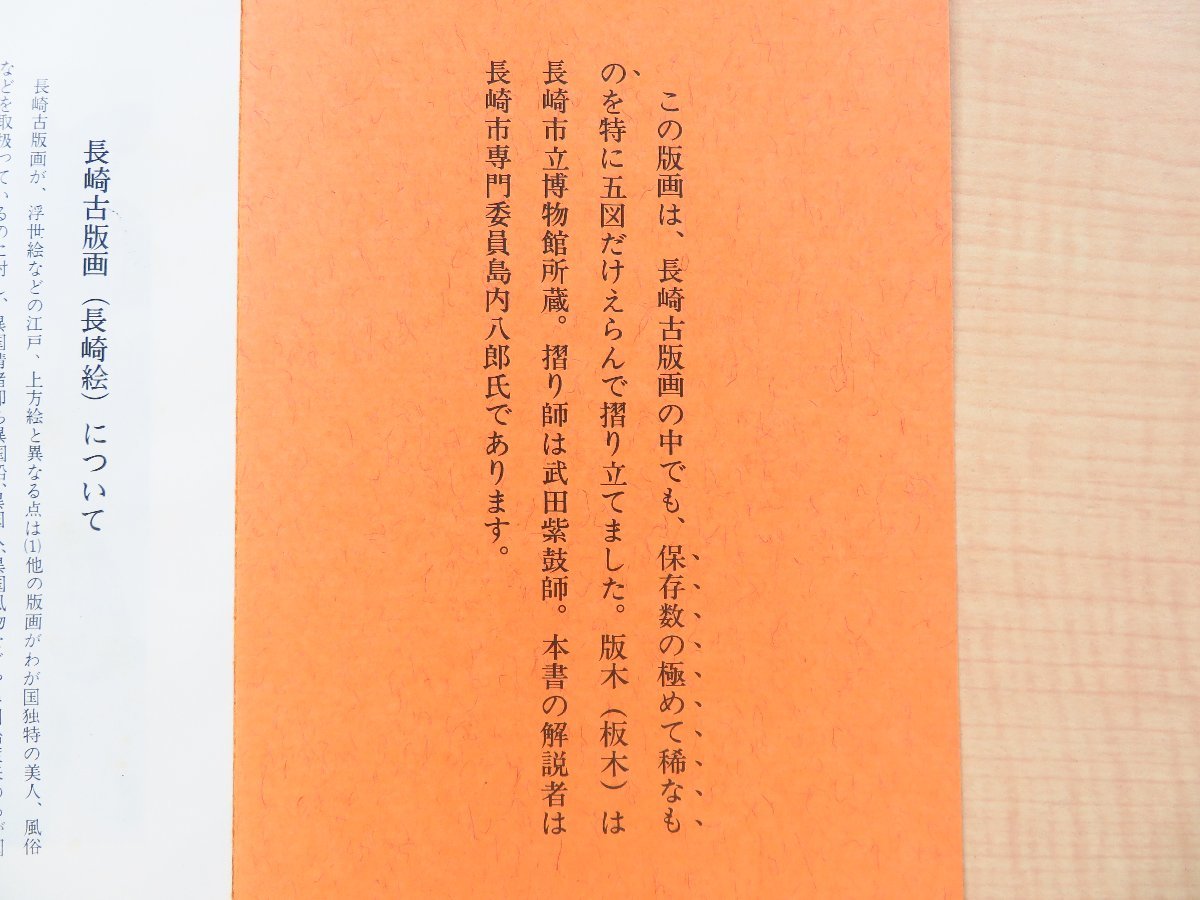 この版画は、長崎古版画の中でも、保存数の極めて稀なも
のを特に五図だけえらんで摺り立てました。版木（板木）は
長崎市立博物館所蔵。摺り師は武田紫鼓師。本書の解説者は
長崎市専門委員島内八郎氏であります。
長崎古版画（長崎絵）について
長崎古版画が、浮世絵などの江戸、上方絵と異なる点は(1)他の版画がわが国独特の美人、風俗
などを取扱っているのに対し、異国情緒即ち異国船、異国人、異国風物など